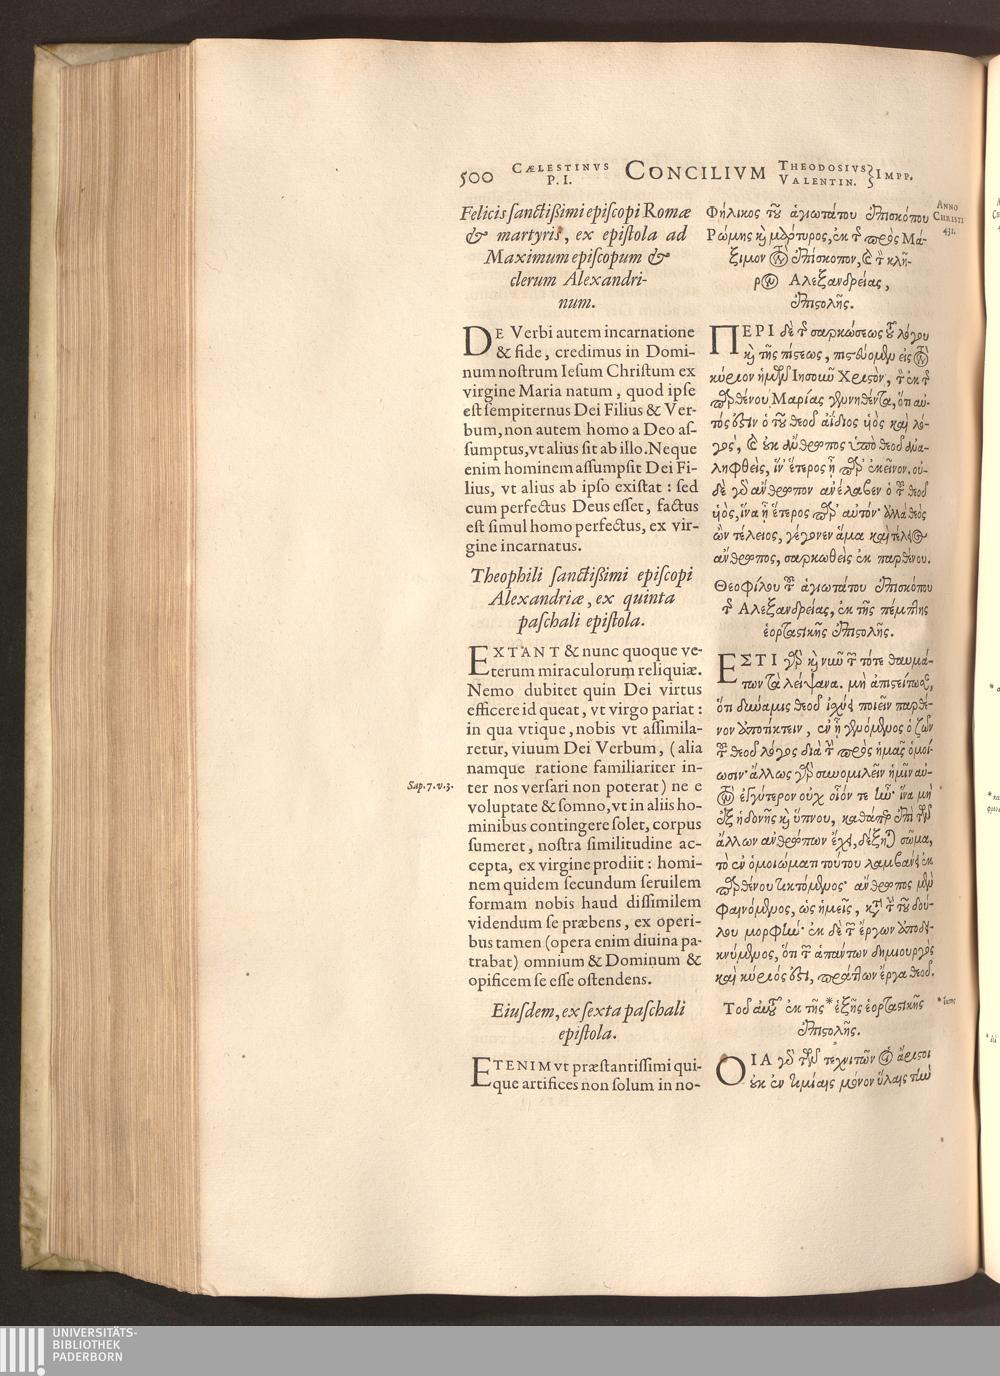 500 CÆLESTINVS P. I. CONCILIVM THEODOSIVS VALENTIN. } IMPP.
ANNO
CHRISTI
431.
Felicis sanctißimi episcopi Romæ
& martyris, ex epistola ad
Maximum episcopum &
clerum Alexandri-
num.
DE Verbi autem incarnatione
& fide, credimus in Domi-
num nostrum Iesum Christum ex
virgine Maria natum, quod ipse
est sempiternus Dei Filius & Ver-
bum, non autem homo a Deo as-
sumptus, vt alius sit ab illo. Neque
enim hominem assumpsit Dei Fi-
lius, vt alius ab ipso existat: sed
cum perfectus Deus esset, factus
est simul homo perfectus, ex vir-
gine incarnatus.
Theophili sanctißimi episcopi
Alexandriæ, ex quinta
paschali epistola.
EXTANT & nunc quoque ve-
terum miraculorum reliquiæ.
Nemo dubitet quin Dei virtus
efficere id queat, vt virgo pariat:
in qua vtique, nobis vt assimila-
retur, viuum Dei Verbum, (alia
namque ratione familiariter in-
Sap. 7. v. 3.
ter nos versari non poterat) ne e
voluptate & somno, vt in aliis ho-
minibus contingere solet, corpus
sumeret, nostra similitudine ac-
cepta, ex virgine prodiit: homi-
nem quidem secundum seruilem
formam nobis haud dissimilem
videndum se præbens, ex operi-
bus tamen (opera enim diuina pa-
trabat) omnium & Dominum &
opificem se esse ostendens.
Eiusdem, ex sexta paschali
epistola.
ETENIM vt præstantissimi qui-
que artifices non solum in no-
Φήλικος τοῦ ἁγιωτάτου ἐπισκόπου
Ῥώμης καὶ μάρτυρος, ἐκ τῆς πρὸς Μά-
ξιμον τὸν ἐπίσκοπον, καὶ τὸν κλῆ-
ρον Ἀλεξανδρείας,
ἐπιστολῆς.
ΠΕΡΙ δὲ τῆς σαρκώσεως τοῦ λόγου
καὶ τῆς πίστεως, πιστεύομεν εἰς τὸν
κύριον ἡμῶν Ἰησοῦν Χριστὸν, τὸν ἐκ τῆς
παρθένου Μαρίας γεννηθέντα, ὅτι αὐ-
τός ἐστιν ὁ τοῦ θεοῦ ἀΐδιος υἱὸς καὶ λό-
γος, καὶ οὐκ ἄνθρωπος ὑπὸ θεοῦ ἀνα-
ληφθεὶς, ἵν' ἕτερος ᾖ παρ' ἐκεῖνον. οὐ-
δὲ γὰρ ἄνθρωπον ἀνέλαβεν ὁ τοῦ θεοῦ
υἱὸς, ἵνα ᾖ ἕτερος παρ' αὐτόν· ἀλλὰ θεὸς
ὢν τέλειος, γέγονεν ἅμα καὶ τέλειος
ἄνθρωπος, σαρκωθεὶς ἐκ παρθένου.
Θεοφίλου τοῦ ἁγιωτάτου ἐπισκόπου
τῆς Ἀλεξανδρείας, ἐκ τῆς πέμπτης
ἑορταστικῆς ἐπιστολῆς.
ΕΣΤΙ γὰρ καὶ νῦν τῶν τότε θαυμά-
των τὰ λείψανα. μὴ ἀπιστείτωσαν,
ὅτι δύναμις θεοῦ ἰσχύει ποιεῖν παρθέ-
νον ἀποτίκτειν, ἐν ᾗ γενόμενος ὁ ζῶν
τοῦ θεοῦ λόγος διὰ τὴν πρὸς ἡμᾶς ὁμοί-
ωσιν· ἄλλως γὰρ συνομιλεῖν ἡμῖν αὐ-
τὸν ἐγγύτερον οὐχ οἷόν τε ἦν· ἵνα μὴ
ἐξ ἡδονῆς καὶ ὕπνου, καθάπερ ἐπὶ τῶν
ἄλλων ἀνθρώπων ἔχει, δέξηται σῶμα,
τὸ ἐν ὁμοιώματι τούτου λαμβάνει ἐκ
παρθένου τικτόμενος· ἄνθρωπος μὲν
φαινόμενος, ὡς ἡμεῖς, κατὰ τὴν τοῦ δού-
λου μορφήν· ἐκ δὲ τῶν ἔργων ἀποδει-
κνύμενος, ὅτι τῶν ἁπάντων δημιουργὸς
καὶ κύριός ἐστι, πράττων ἔργα θεοῦ.
Τοῦ αὐτοῦ ἐκ τῆς * ἑξῆς ἑορταστικῆς
ἐπιστολῆς.
* ἕκτης
ΟΙΑ γὰρ τῶν τεχνιτῶν οἱ ἄριστοι
οὐκ ἐν τιμίαις μόνον ὕλαις τὴν
UNIVERSITÄTS-
BIBLIOTHEK
PADERBORN